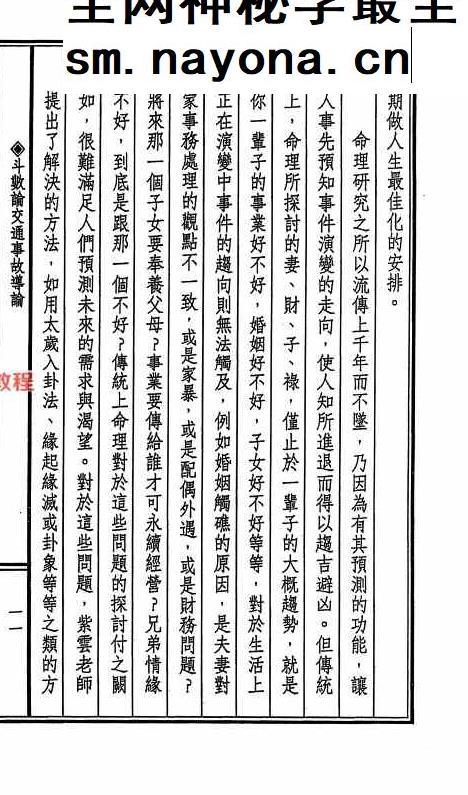 全网神秘学最全
sm.nayona.cn
期做人生最佳化的安排。
命理研究之所以流傳上千年而不墜，乃因為有其預測的功能，讓
人事先預知事件演變的走向，使人知所進退而得以趨吉避凶。但傳統
上，命理所探討的妻、財、子、祿，僅止於一輩子的大概趨勢，就是
你一輩子的事業好不好，婚姻好不好，子女好不好等等，對於生活上
正在演變中事件的趨向則無法觸及，例如婚姻觸礁的原因，是夫妻對
家事務處理的觀點不一致，或是家暴，或是配偶外遇，或是財務問題？
將來那一個子女要奉養父母？事業要傳給誰才可永續經營？兄弟情緣
不好，到底是跟那一個不好？傳統上命理對於這些問題的探討付之闕
如，很難滿足人們預測未來的需求與渴望。對於這些問題，紫雲老師
提出了解決的方法，如用太歲入卦法、緣起緣滅或卦象等等之類的方
◈斗數論交通事故導論
一一
教程